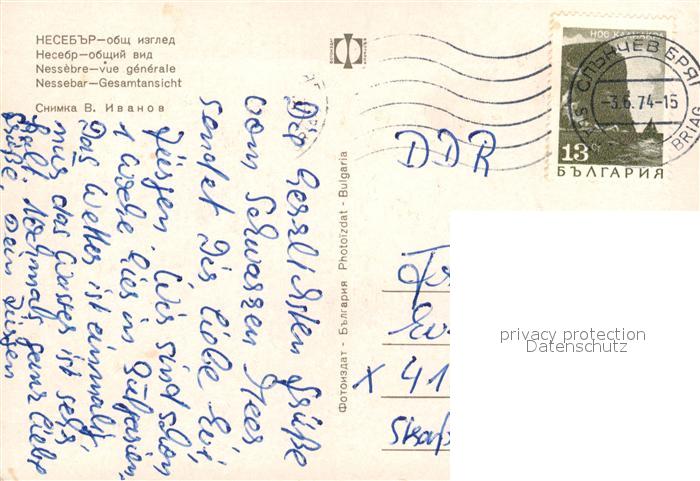 НЕСЕБЪР—общ изглед
Несебр—общий вид
Nessèbre—vue générale
Nessebar—Gesamtansicht
Снимка В. Иванов
Die herzlichsten Grüße
vom Schwarzen Meer
sendet Dir liebe Evi
Jürgen. Wir sind schon
1 Woche hier in Bulgarien.
Das Wetter ist einmalig
nur das Wasser ist sehr
kalt. Nochmals ganz liebe
Grüße, Dein Jürgen
Фотоиздат - България Photoïzdat - Bulgaria
НОС КАЛИАКРА
13
БЪЛГАРИЯ
СЛЪНЧЕВ БРЯГ
-3.6.74-15
BRIAG
DDR
X 41
privacy protection
Datenschutz